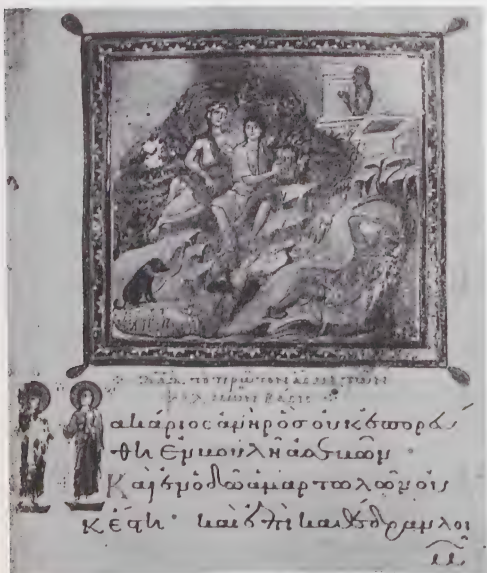 ακάριος ἀνὴρ ὃς οὐκ ἐπορεύ
θη ἐν βουλῆ ἀσεβῶν ·
Καὶ ἐν ὁδῶ ἁμαρτωλῶν οὐ
κ ἔστη · καὶ ἐπὶ καθέδραν λοι